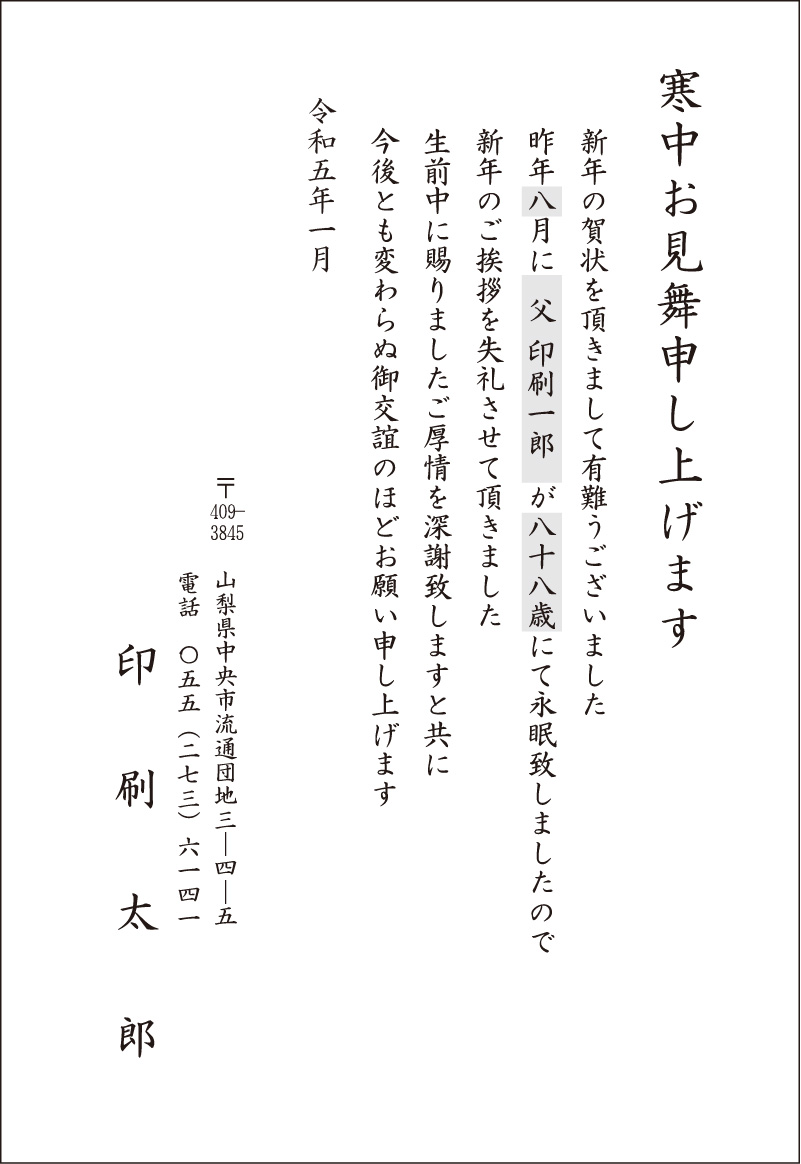 寒中お見舞申し上げます
新年の賀状を頂きまして有難うございました
昨年八月に 父 印刷一郎 が八十八歳にて永眠致しましたので
新年のご挨拶を失礼させて頂きました
生前中に賜りましたご厚情を深謝致しますと共に
今後とも変わらぬ御交誼のほどお願い申し上げます
令和五年一月
〒409-3845
山梨県中央市流通団地三―四―五
電話 〇五五(二七三)六一四一
印刷太郎